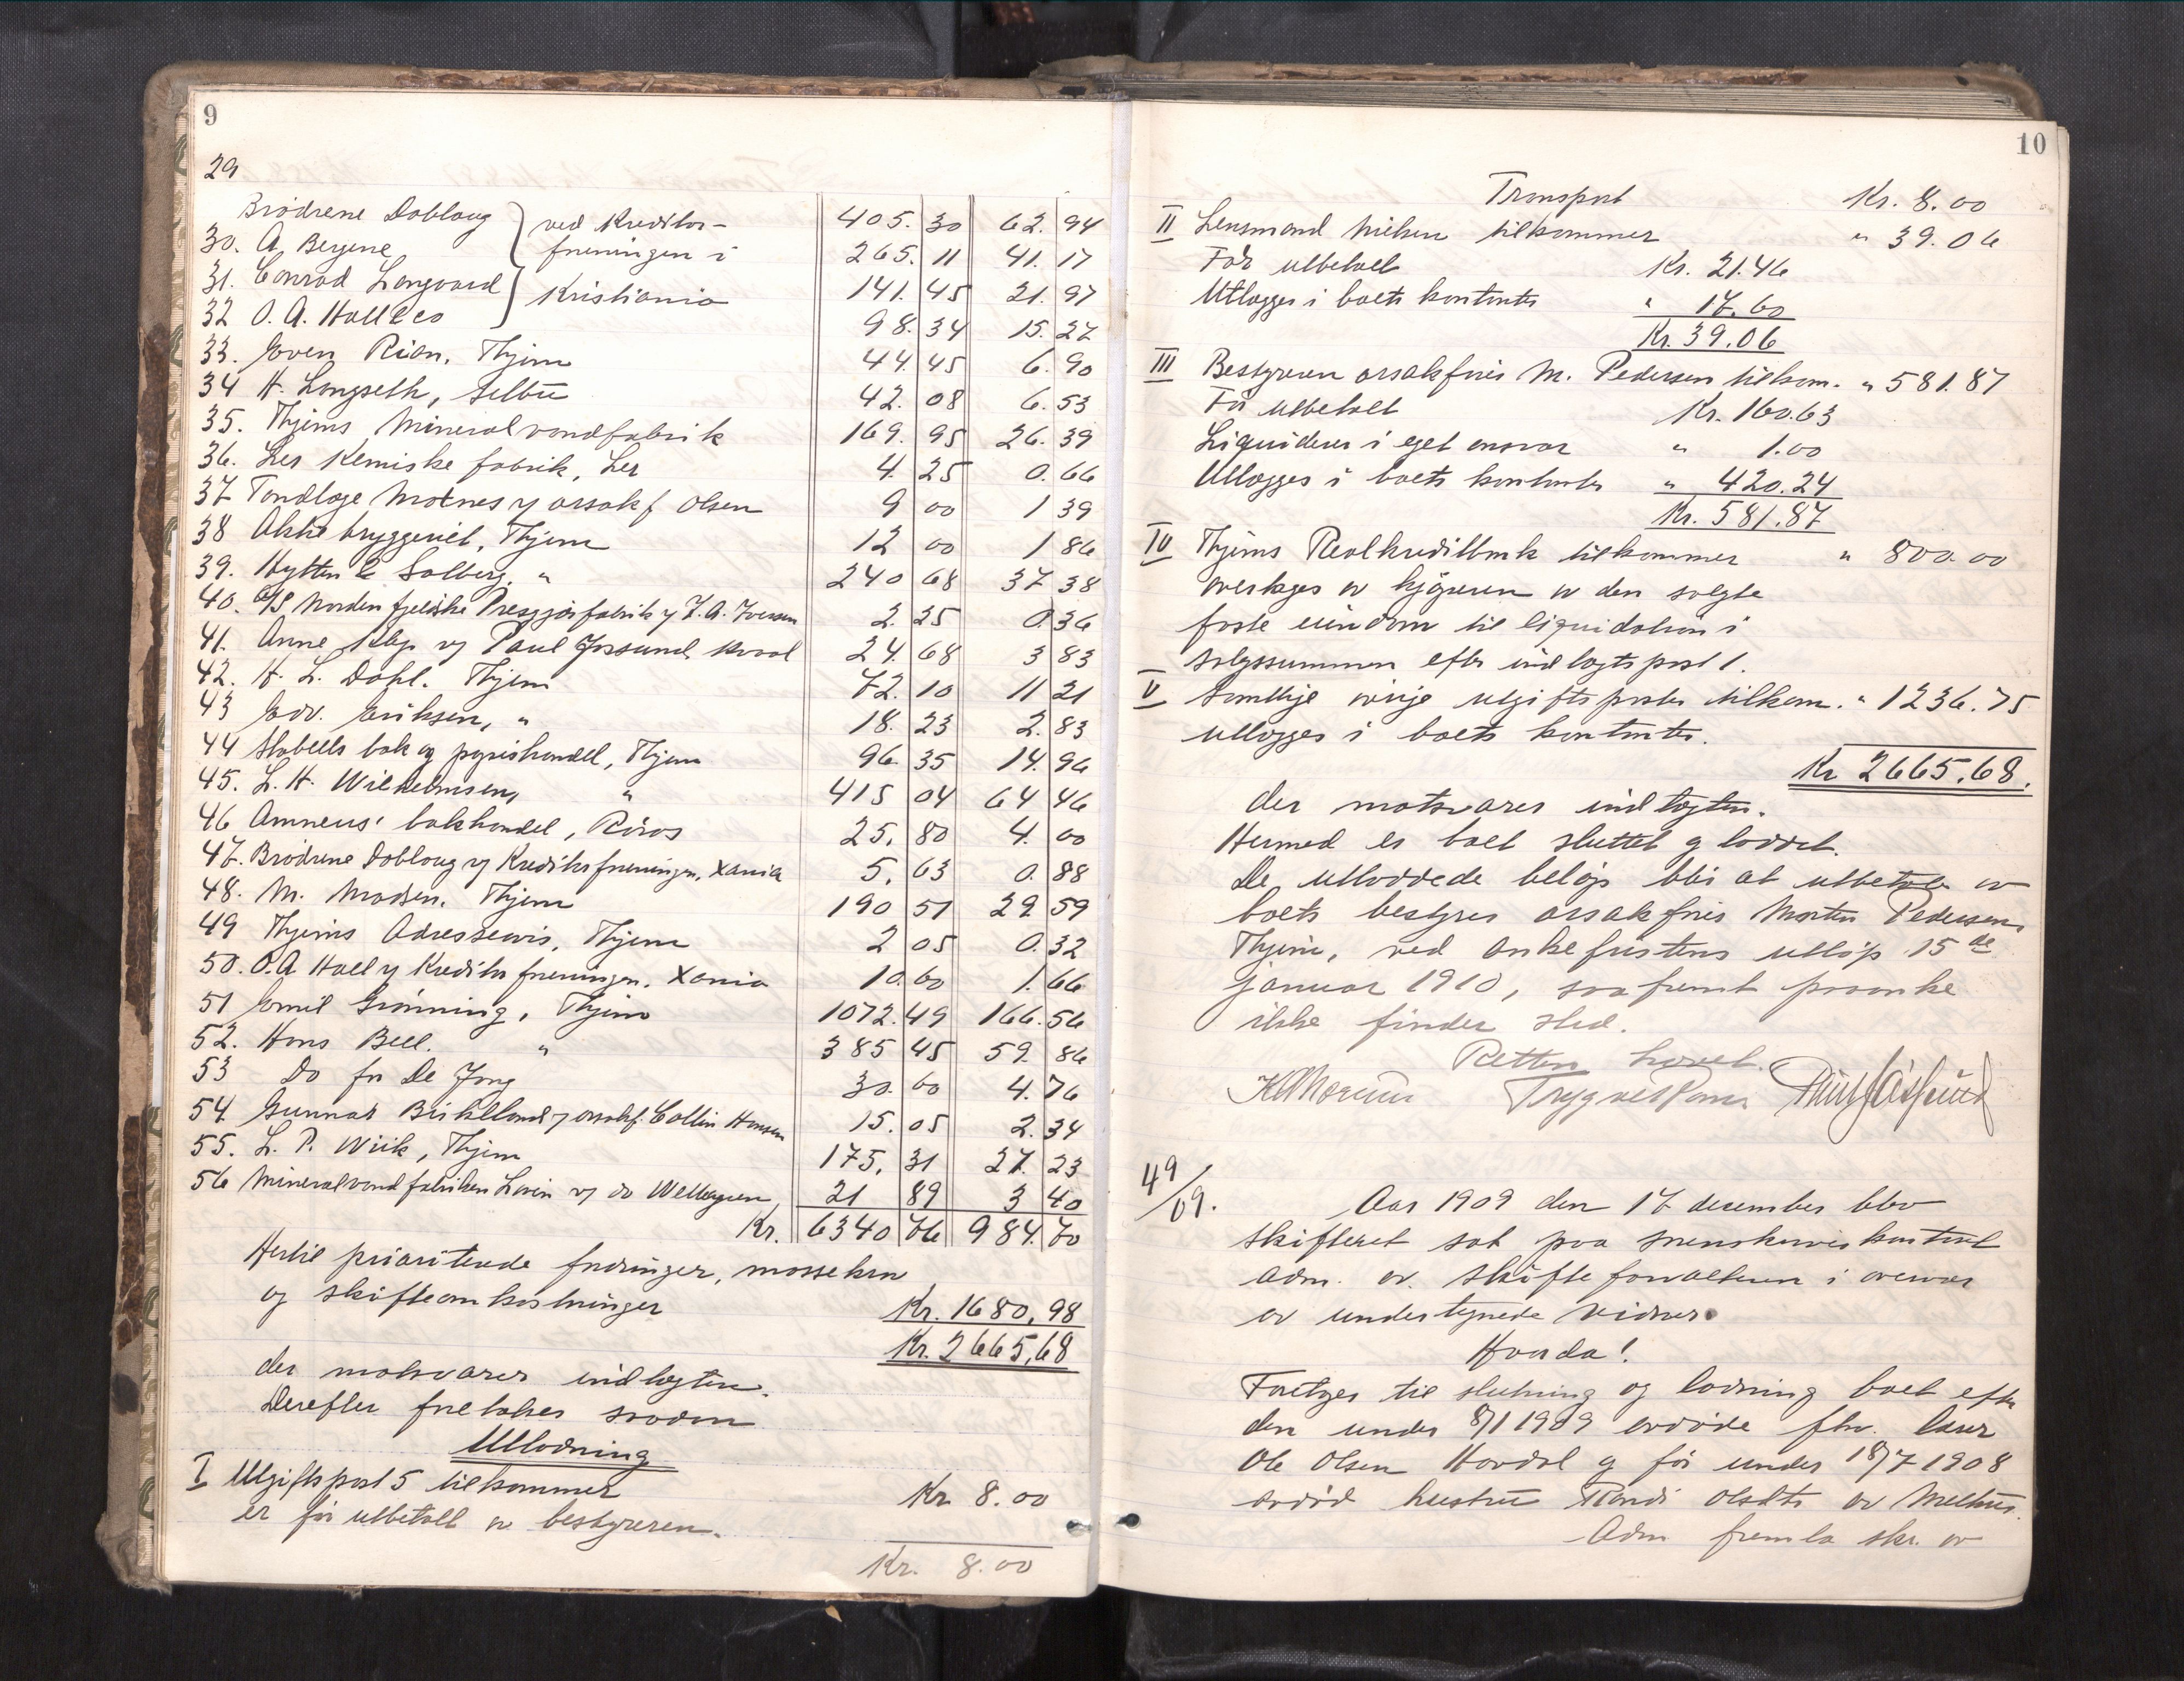 9
29
Brødrene Dobloug } ved Kreditor- 405.30 62.94
30. A. Bergene foreningen i 265.11 41.17
31. Conrad Langaard } Kristiania 141.45 21.97
32 O. A. Hall & Co 98.34 15.27
33. Even Rian, Thjem 44.45 6.90
34 H. Langseth, Selbu 42.08 6.53
35. Thjems Mineralvandfabrik 169.95 26.39
36. Ler Kemiske fabrik, Ler 4.25 0.66
37 Tandlæge Motnes v/ orsakf Olsen 9 00 1 39
38 Aktie bryggeriet, Thjem 12 00 1 86
39. Hytten & Solberg. " 240 68 37 38
40. A/S Nordenfjeldske Presgjærfabrik v/ J. A. Iversen 2.25 0.36
41. Anne v/ Paul Kvaal 24.68 3 83
42. H. L. Dahl. Thjem 72.10 11 21
43 Edv. Eriksen, " 18.23 2.83
44 Stabells bok og papirhandel, Thjem 96.35 14.96
45. L. H. Wilhelmsen, " 415 04 64 46
46 Amneus' bokhandel, Röros 25.80 4.00
47. Brødrene Dobloug v/ Kreditorforeningen, Xania 5.63 0.88
48. M. Madsen. Thjem 190 51 29 59
49 Thjems Adresseavis, Thjem 2 05 0.32
50. O. A Hall v/ Kreditorforeningen. Xania 10.60 1.66
51 Emil Grönning, Thjem 1072.49 166.56
52. Hans Bell. " 385 45 59.86
53 Do for De Jong 30.60 4.76
54. Gunnar Birkeland v/ orsakf. Collin Hansen 15.05 2.34
55. L. P. Wiik, Thjem 175.31 27.23
56 Mineralvandfabriken Lovin v/ do 21 89 3 40
Kr. 6340 76 984.70
Hertil prioriterede fordringer, massekrav
og skifteomkostninger Kr. 1680,98
Kr. 2665,68
der motsvarer indtægten.
Derefter foretokes saadan
Utlodning
I Utgiftspost 5 tilkommer Kr 8.00
er før utbetalt av bestyreren.
Kr. 8.00
10
Transport Kr. 8.00
II Lensmand Nielsen tilkommer " 39.06
Før utbetalt Kr. 21.46
Utlægges i boets kontanter " 17.60
Kr. 39.06
III Bestyreren orsakfører M. Pedersen tilkom. " 581.87
Før utbetalt Kr. 160.63
Liquiderer i eget ansvar " 1.00
Utlægges i boets kontanter " 420.24
Kr. 581.87
IV Thjems Realkreditbank tilkommer " 800.00
overtages av kjøperen av den solgte
faste eiendom til liquidation i
salgssummen efter indtægtspost 1.
V Samtlige øvrige utgiftsposter tilkom. " 1236.75
utlægges i boets kontanter.
Kr 2665.68.
der motsvarer indtægten.
Hermed er boet sluttet og loddet.
De utloddede beløp blir at utbetale av
boets bestyrer orsakfører Morten Pedersen,
Thjem, ved ankefristens utløp 15de
januar 1910, saafremt paaanke
ikke finder sted.
Retten hævet.
49/09.
Aar 1909 den 17 december blev
skifteret sat paa sorenskriverkontoret
adm. av skifteforvalteren i overvær
av undertegnede vidner.
Hvorda!
Foretages til slutning og lodning boet efter
den under 8/1 1909 avdøde fhv.
Ole Olsen Hovdal og før under 18/7 1908
avdød hustru Randi Olsdtr av Melhus.
Adm fremla skr. av